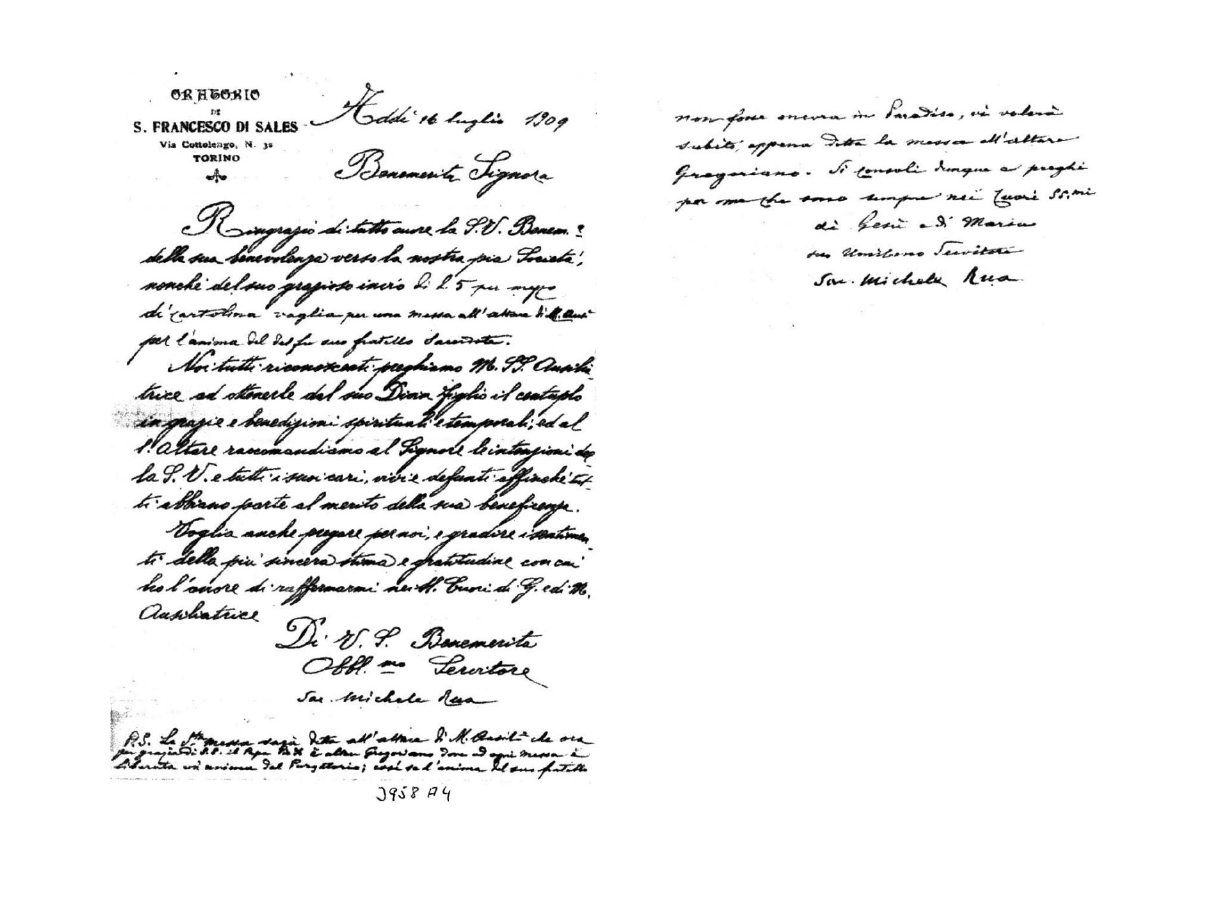 ORATORIO
DI
S. FRANCESCO DI SALES
Via Cottolengo, N. 32
TORINO
Addì 16 luglio 1909
Benemerita Signora
Ringrazio di tutto cuore la S.V. Benem.ª
della sua benevolenza verso la nostra pia Società,
nonché del suo grazioso invio di L 5 per mezzo
di cartolina vaglia per una messa all'altare di M. Aus.
per l'anima del suo fratello Sacerdote.
Noi tutti riconoscenti preghiamo M. SS. Ausilia
trice ad ottenerle dal suo Divin figlio il centuplo
in grazie e benedizioni spirituali e temporali, ed al
l'Altare raccomandiamo al Signore le intenzioni del
la S. V. e tutti i suoi cari, vivi e defunti affinché tut-
ti abbiano parte al merito della sua beneficenza.
Voglia anche pregare per noi, e gradire i sentimen
ti della più sincera stima e gratitudine con cui
ho l'onore di raffermarmi nei SS. Cuori di G. e di M.
Ausiliatrice
Di V. S. Benemerita
Obbl.mo Servitore
Sac. Michele Rua
P.S. La S.ta messa sarà detta all'altare di M. Ausil.e che ora
per grazia di S.S. il Papa Pio X è altare Gregoriano dove ad ogni messa è
liberata un'anima dal Purgatorio; così se l'anima del suo fratello
J958 A4
non fosse ancora in Paradiso, vi volerà
subito, appena detta la messa all'altare
Gregoriano. Si consoli dunque e preghi
per me che sono sempre nei Cuori SS.mi
di Gesù e di Maria
suo Umilissimo Servitore
Sac. Michele Rua